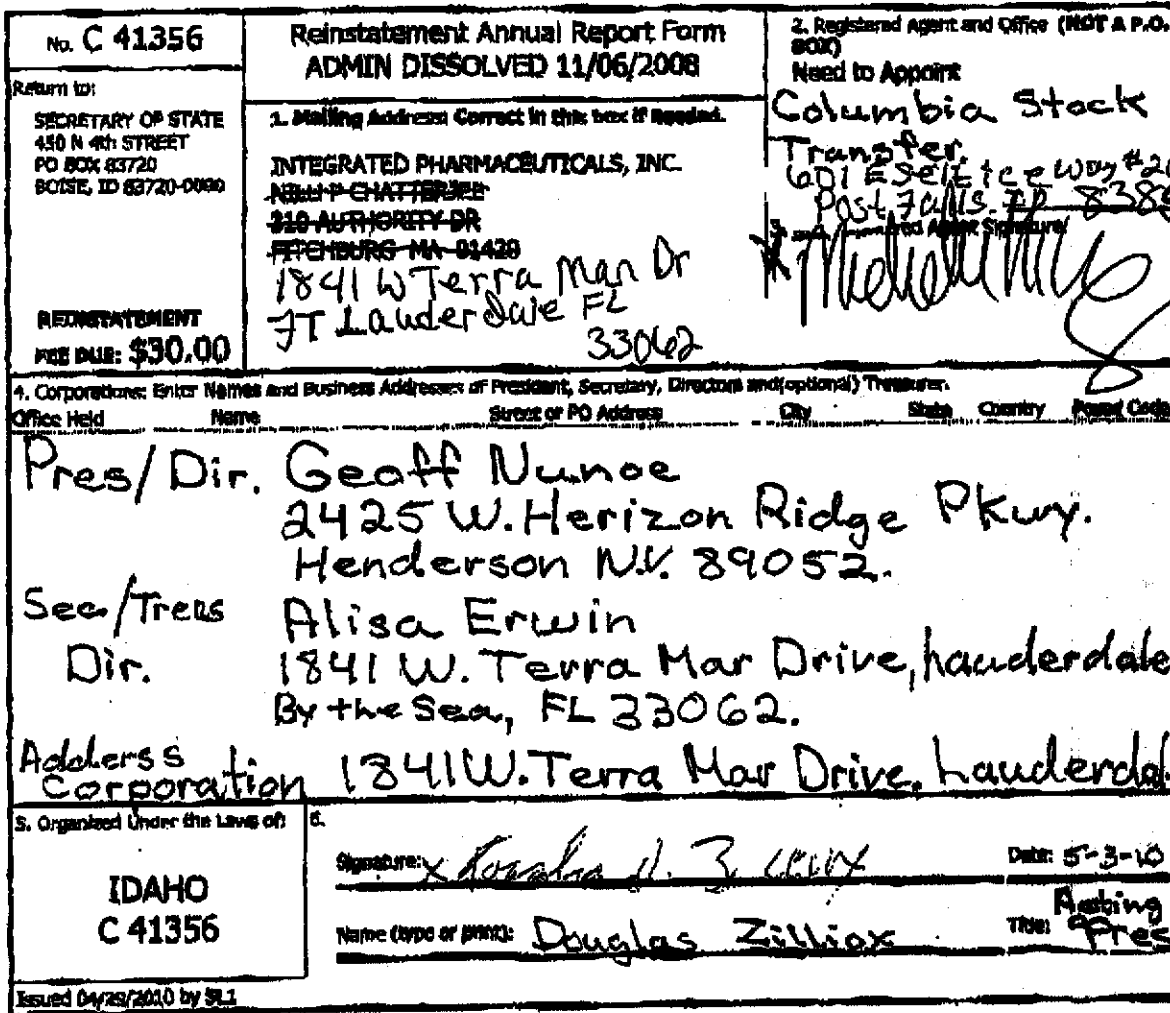 No. C 41356
Return to:
SECRETARY OF STATE
450 N 4th STREET
PO BOX 83720
BOISE, ID 83720-0080
REINSTATEMENT
FEE DUE: $30.00
Reinstatement Annual Report Form
ADMIN DISSOLVED 11/06/2008
1. Mailing Address: Correct in this box if Needed.
INTEGRATED PHARMACEUTICALS, INC.
NILU P CHATTERJEE
310 AUTHORITY DR
FITCHBURG MA 01420
1841 W Terra Man Dr
FT Lauderdale FL
33062
2. Registered Agent and Office (NOT A P.O.
BOX)
Need to Appoint
Columbia Stock
Transfer.
601 E Seltice Way #20
Post Falls. ID 8385
Agent Signature
4. Corporations: Enter Names and Business Addresses of President, Secretary, Directors and (optional) Treasurer.
Office Held Name Street or PO Address City State Country Postal Code
Pres/Dir. Geoff Nunoe
2425 W. Herizon Ridge Pkwy.
Henderson N.V. 89052.
Sec/Tres Alisa Erwin
Dir. 1841 W. Terra Mar Drive, Lauderdale
By the Sea, FL 33062.
Adderss
Corporation 1841 W. Terra Mar Drive, Lauderdal
5. Organized Under the Laws of:
IDAHO
C 41356
6.
Signature: x Date: 5-3-10
Name (type or print): Douglas Zilliox Title: Acting Pres
Issued 04/29/2010 by SL1